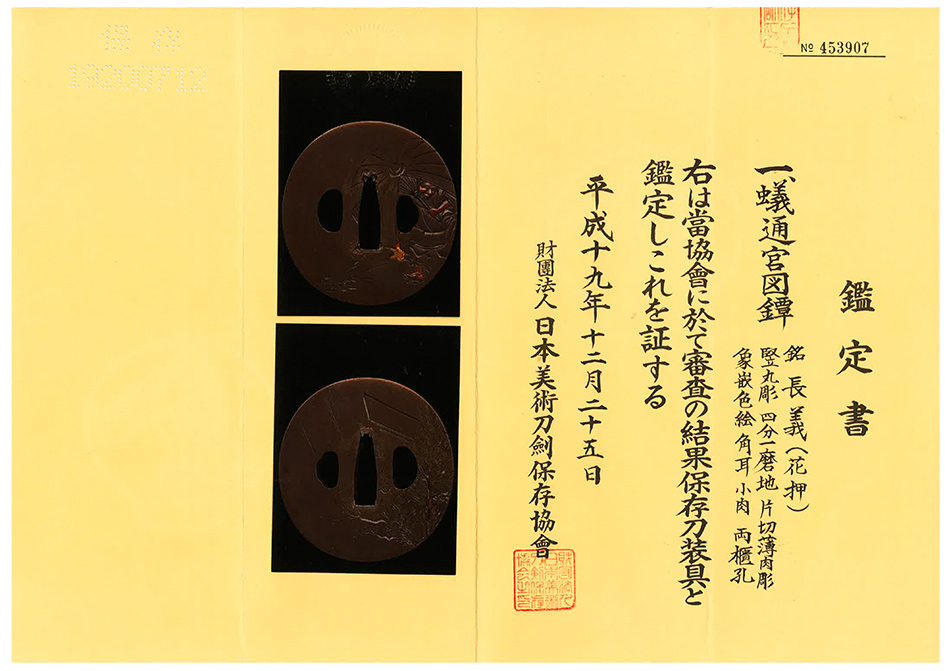 № 453907
鑑定書
一、蟻通宮図鐔
銘 長義(花押)
竪丸形 四分一磨地 片切薄肉彫
象嵌色絵 角耳小肉 両櫃孔
右は當協會に於て審査の結果保存刀装具と
鑑定しこれを証する
平成十九年十二月二十五日
財團法人 日本美術刀劍保存協會